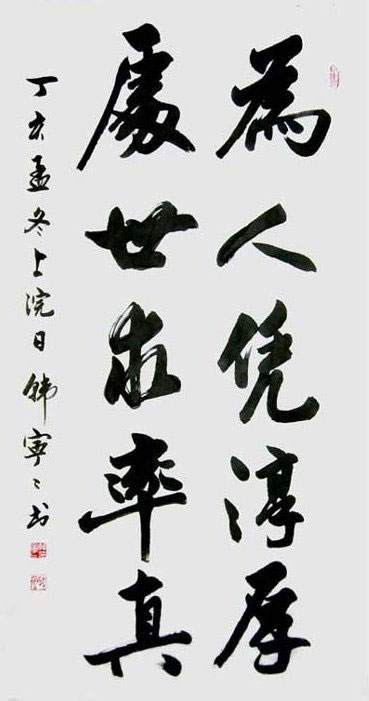 為人凭淳厚
處世求率真
丁亥孟冬上浣日韩寧寧书